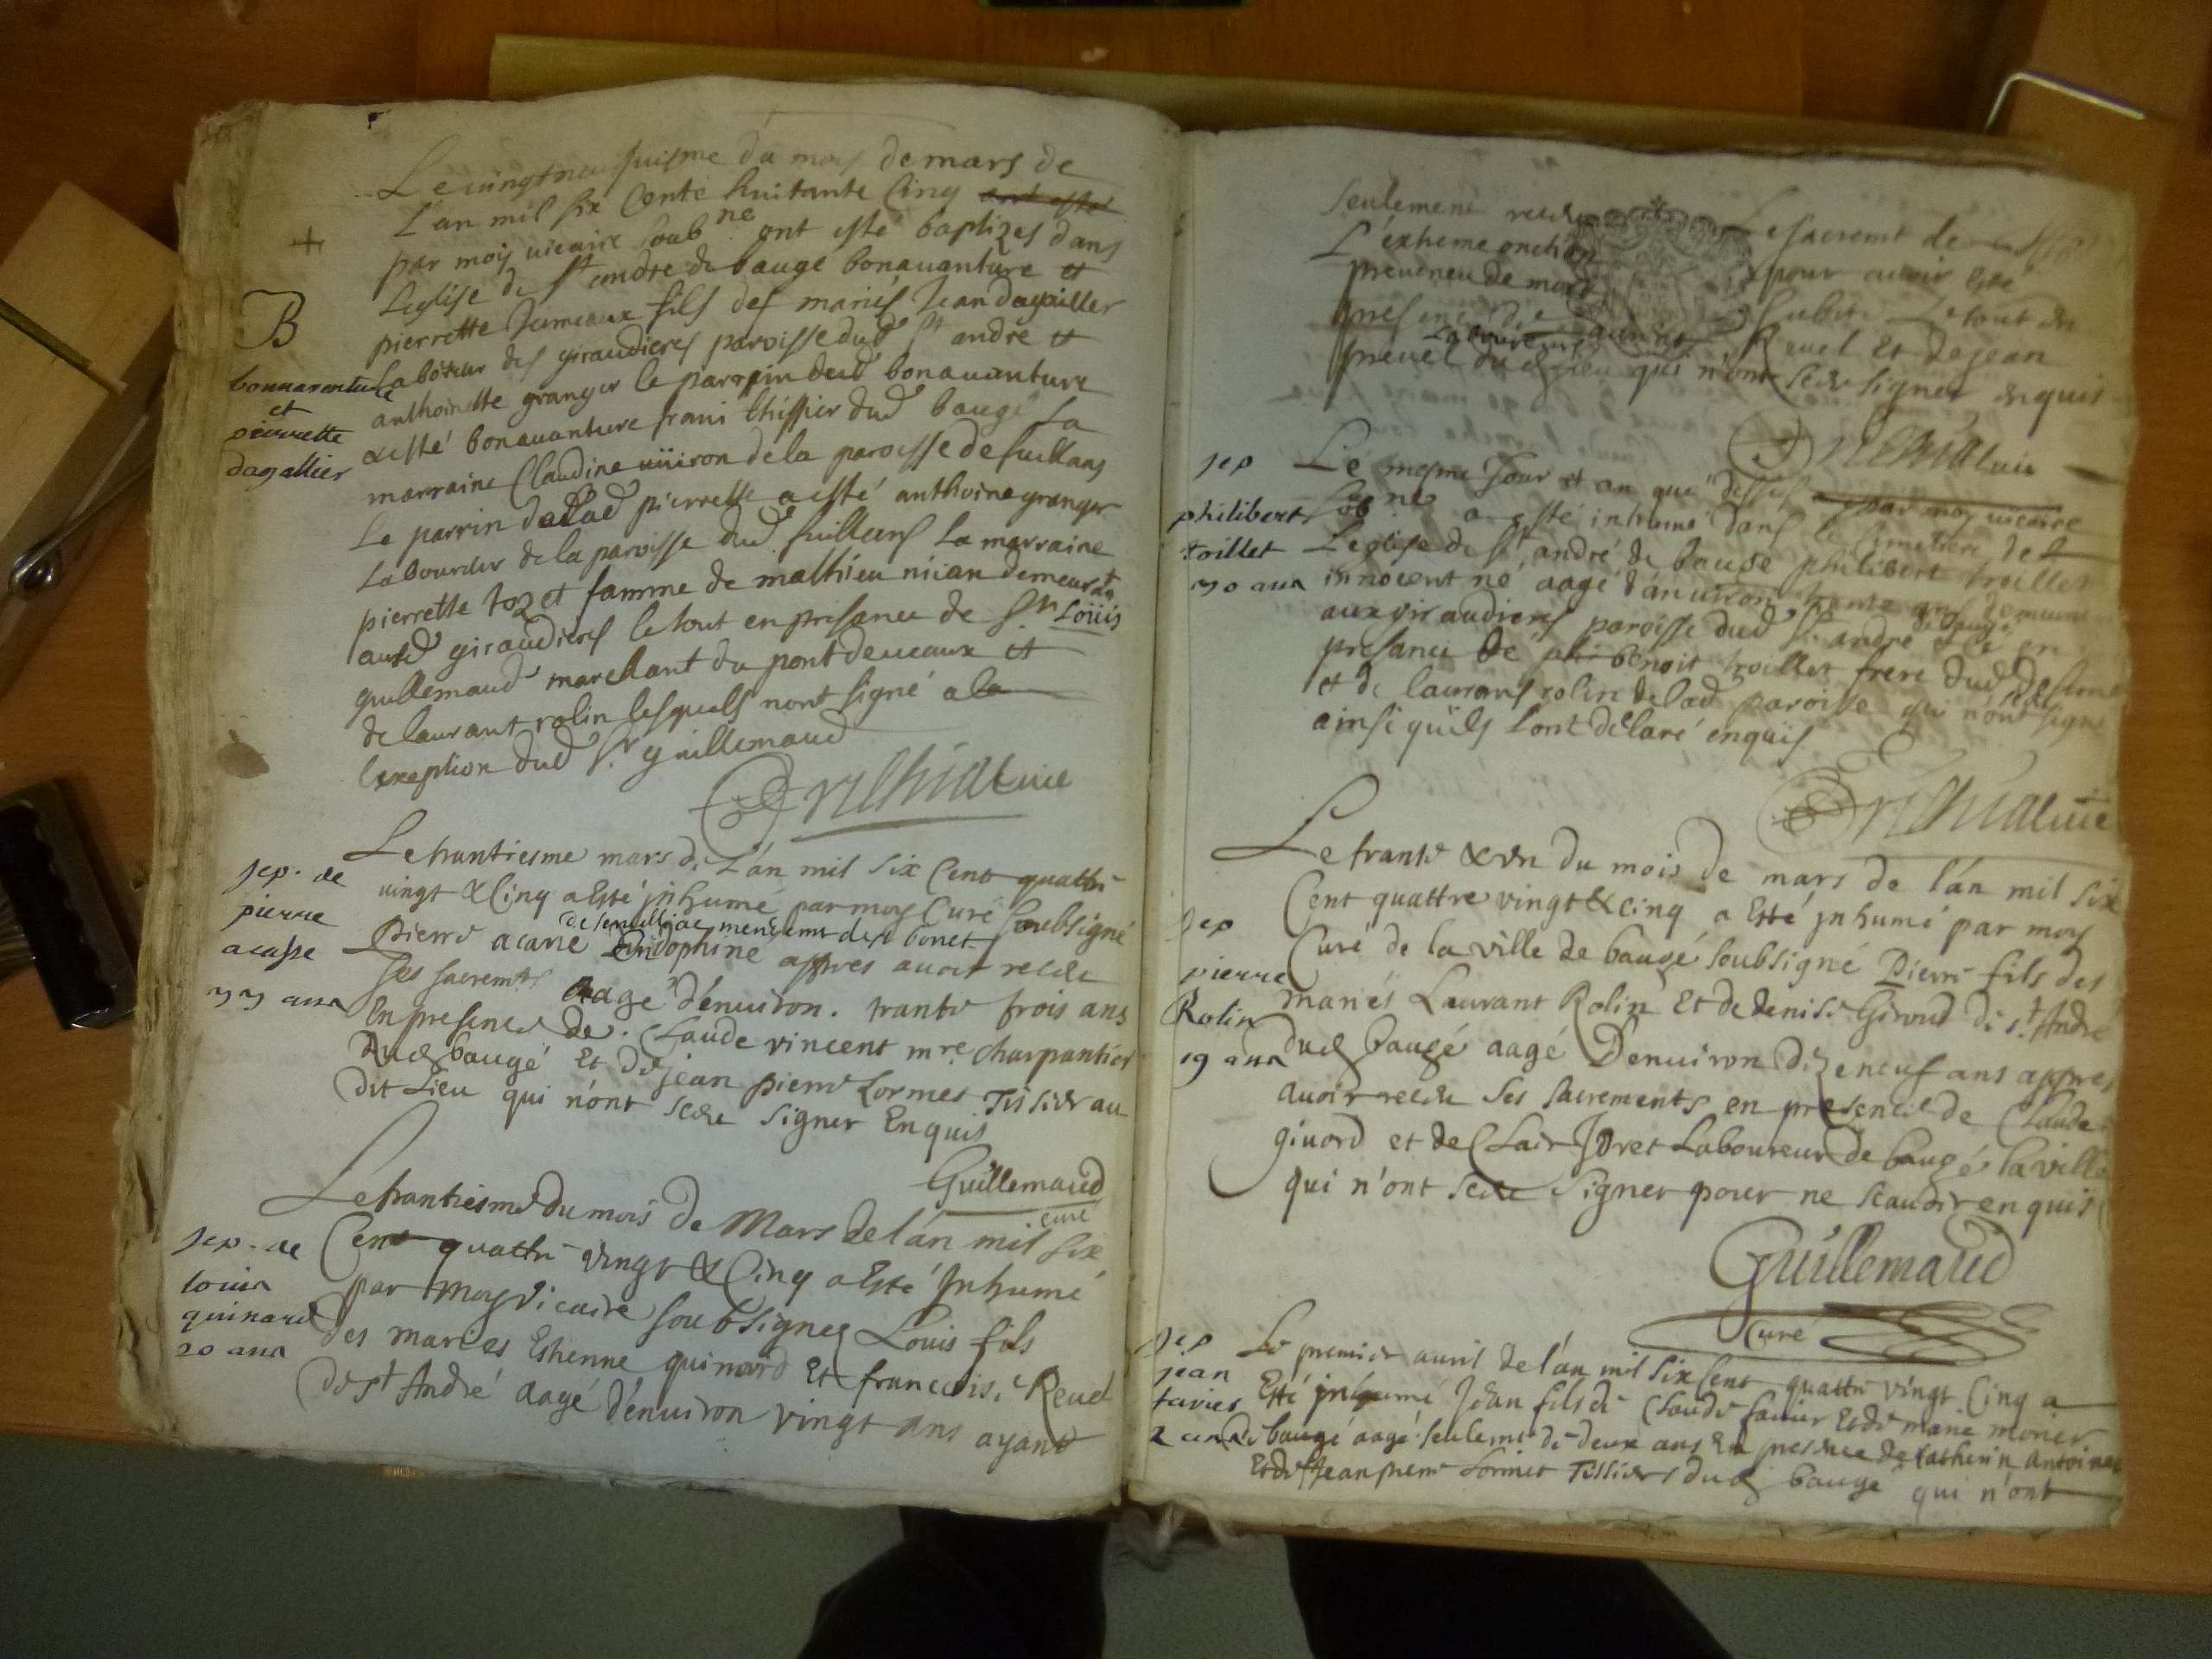 Le vingtneufuiesme du mois de mars de
L'an mil six cents huitante Cinq ont esté
par moy vicaire soub.ne ont esté baptizes dans
+
Leglise de st andre de baugé bonauanture et
pierrette Jumeaux fils des mariés Jean dagallier
B
bonnaventure
et
pierrette
dagallier
Laboreur des giraudieres paroisse dud st andré et
anthoinette granger le parrpin dud bonauanture
a esté bonauanture frani thissier dud baugé La
marraine Claudine uiiron de la paroisse de fuillans
Le parrin de lad pierrette a esté anthoine granger
Labourdr de la paroisse dud fuillans La marraine
pierrette toz et famme de mathieu niian demeurdt
ausd giraudieres le tout en presance de Sr. Loüis
guillemaud marchant du pont deueaux et
de laurant rolin lesquels nont signé a la
lexception dud Sr. guillemaud
vic
Sep. de
pierre
acasse
33 ans
Le trantiesme mars de L'an mil six Cent quattre
vingt & Cinq a Esté jnhumé par moy Curé soubsigné
Pierre acarie En dophiné appres auoir recdu
Ses sacremts aagé d'enuiron. trante frois ans
En presence de. Claude vincent mre charpantier
Dud baugé Et de jean pierre Lormet Tisier au
dit Lieu qui n'ont scdu signer Enquis
Guillemaud
curé
Sep. de
louis
quinard
20 ans
Le trantiesme du mois de Mars de lán mil Six
Cent quattre vingt & Cinq a Esté Jnhumé
par Moy vicaire soubsigneé Louis fils
des mariés Estienne quinard Et francoise Reuel
de st André aagé d'enuiron vingt ans ayant
seulement recdu Le sacremt de
L'extreme onction pour auoir Esté
preueneu de mort Subite Le tout en
presence de Reuel Et de jean
Laboureurs
preuel dud Lieu qui n'ont scdu signer enquis
vic
Sep
philibert
toillet
30 ans
Le mesme Jour et an que dessus par moy vicaire
sob.né a esté inhumé dans le simetiere de
Leglise de st andré de bauge philibert troillet
innocent né aagé d'anuiron trante ans demeurt
aux giraudieres paroisse dud St andré de baugé en
presance de phi benoit troillet frere dud
et de laurans rolin de lad paroisse qui n'ont signé
ainsi qu'ils lont déclaré enquis
vic
Sep
pierre
Rolin
19 ans
Le trante & vn du mois de mars de l'án mil six
Cent quattre vingt & cinq a Esté jnhumé par moy
Curé de la ville de baugé soubsigné Pierre fils des
mariés Laurant Rolin Et de denise Giroud de s.t André
dud baugé aagé Denuiron dizeneuf ans appres
auoir recdu Ses sacrements en presence de Claude
giuord et de Clair Joret Laboureur de baugé la ville
qui n'ont scdu Signer pour ne scauoir enquis
Guillemaud
Curé
Sep
jean
favier
2 ans
Le premier auril de l'án mil six Cent quattre vingt Cinq a
Esté jnhumé Jean fils de Claude fauier Et de marie monier
de baugé aagé seulemt de deux ans En presence de Catherin Antoine
Et de Jean pierre Lormet Tissier dud baugé qui n'ont